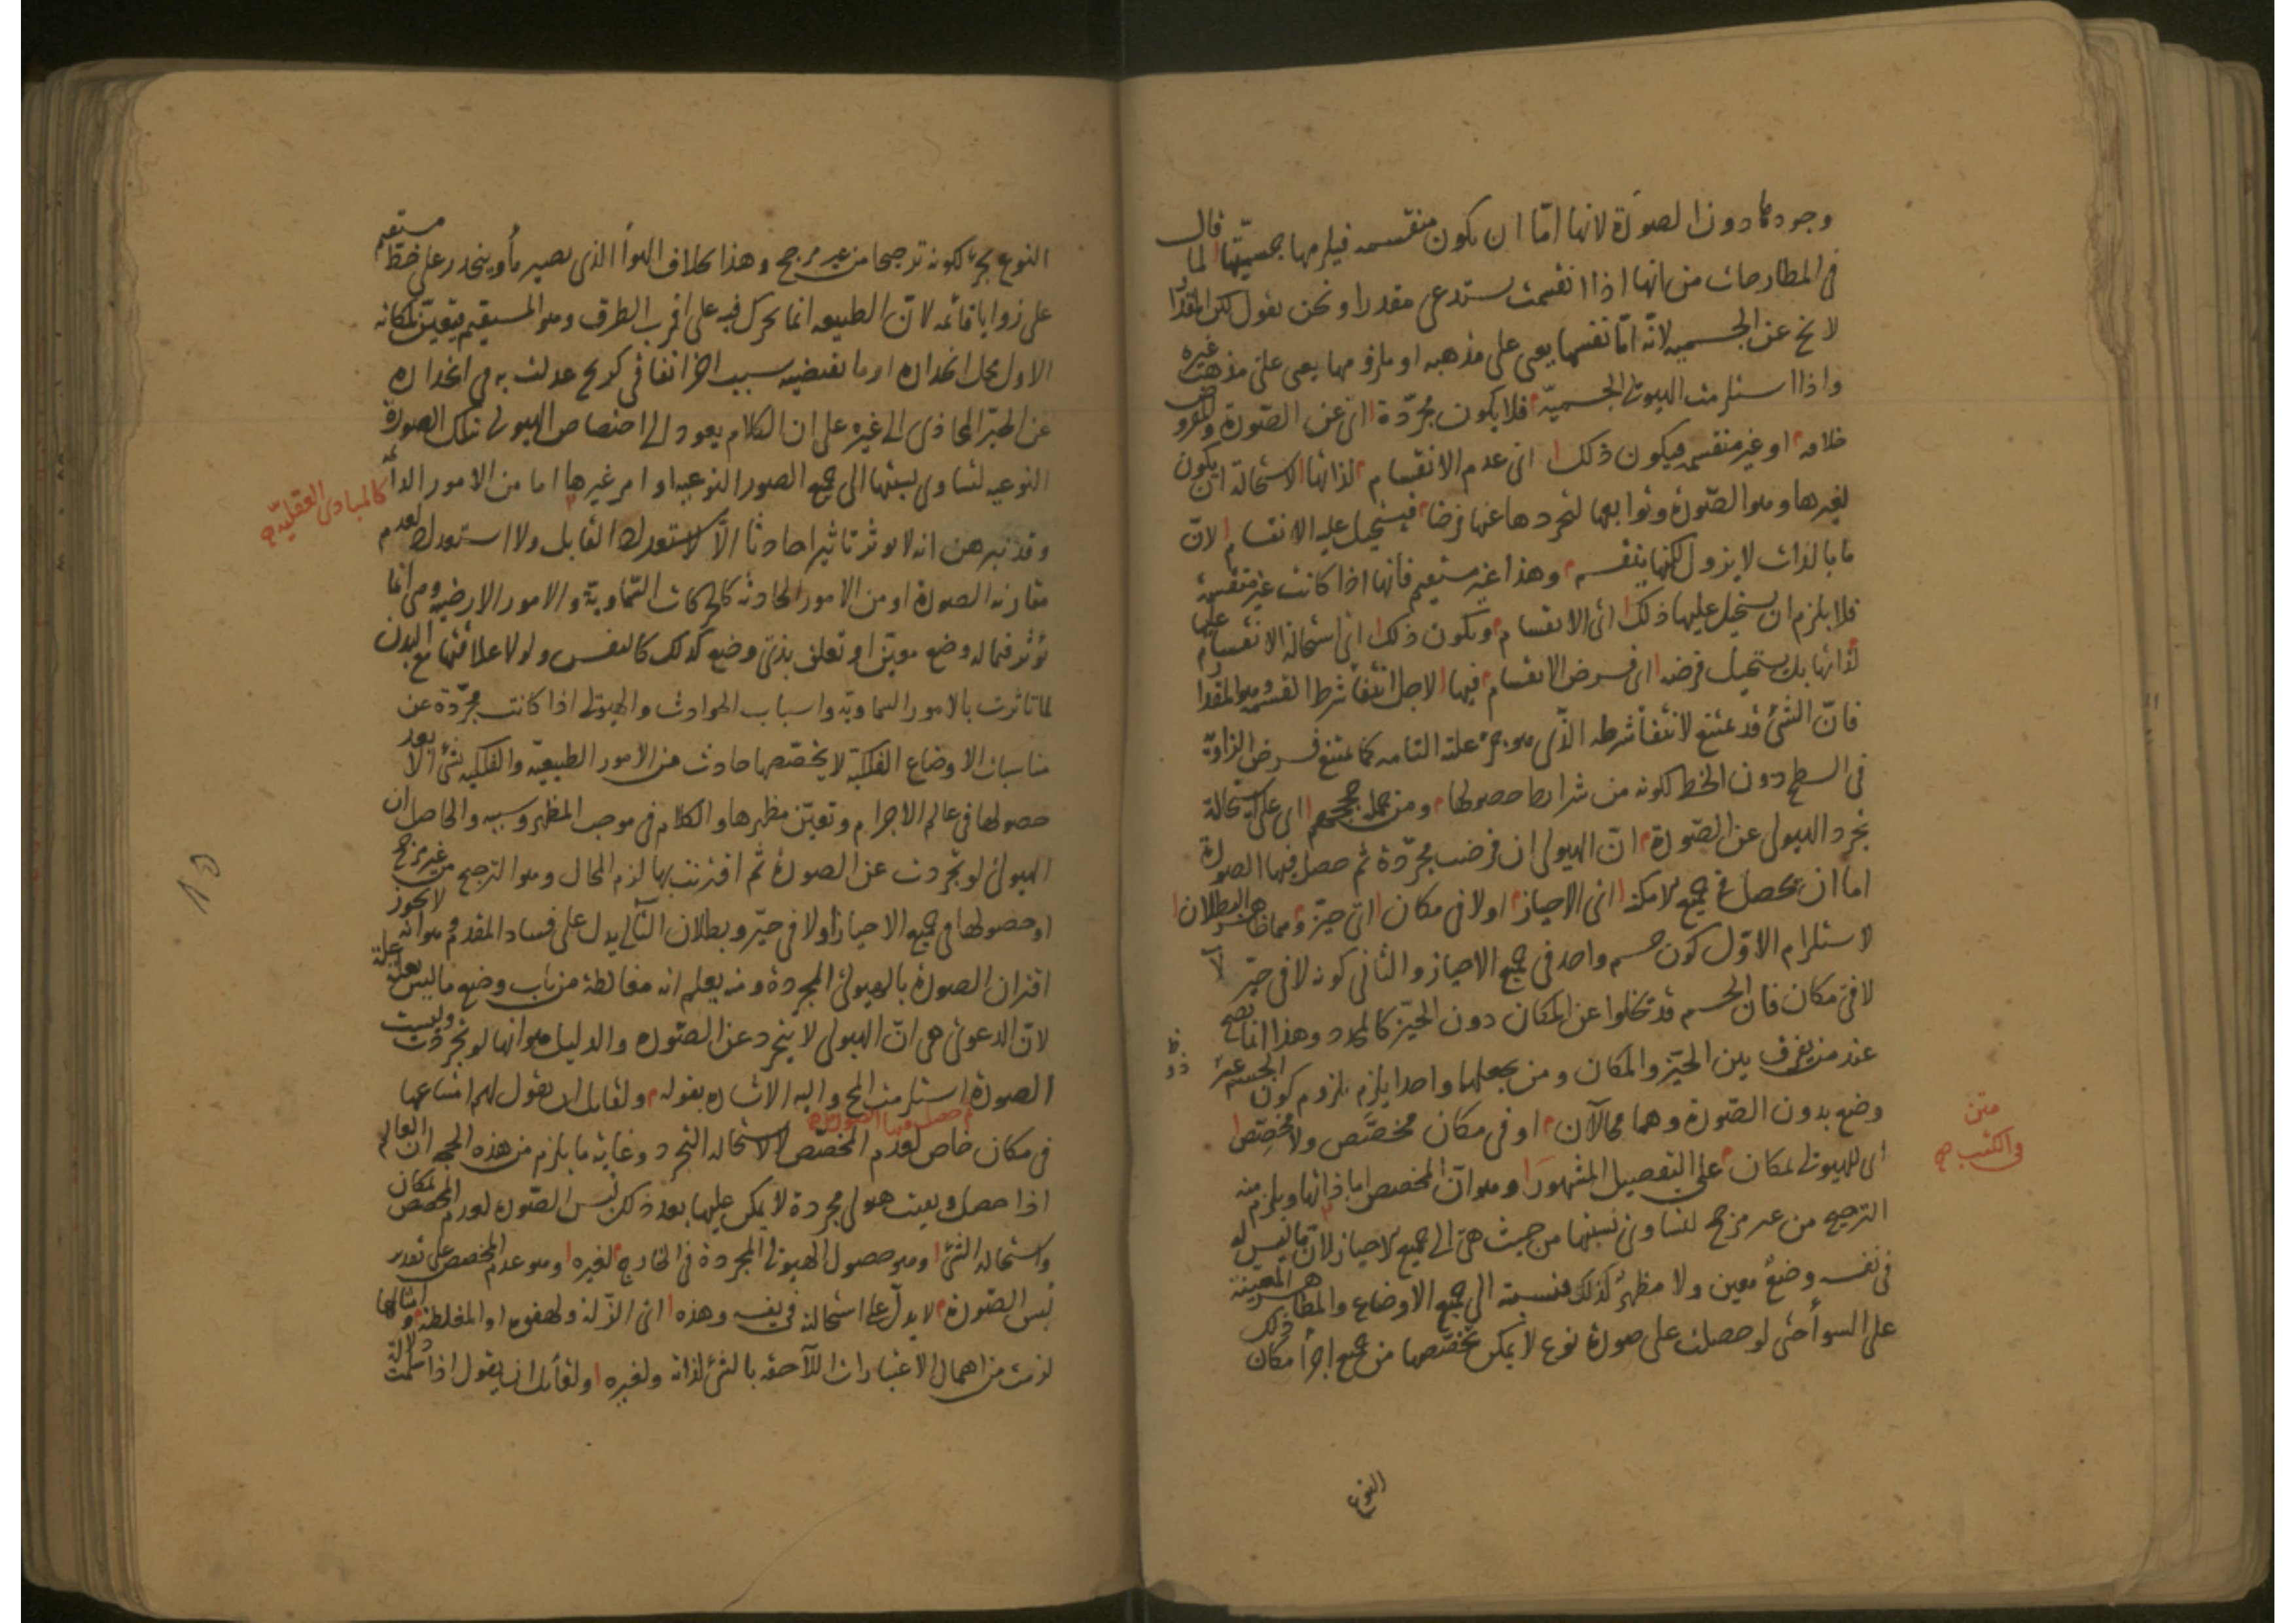 وجودها دون الصورة لانها امّا ان يكون منقسمه فيلزمها جسميّتها لما قال
فى المطارحات من انها اذا انقسمت يستدعى مقدرا ونحن نقول لكن المقدار
لا يخ عن الجسميه لانّه امّا نفسها يعى على مذهبه او ملزومها يعى على مذهب غيره
واذا استلزمت الهيولى الجسميّة فلا يكون مجرّدة اى عن الصّورة والمفروض
خلافه او غير منقسمه فيكون ذلك اى عدم الانقسام لذاتها لاستحالة ان يكون
لغيرها وهو الصّورة وتوابعها لتجردها عنها فرضا فيستحيل عليه الانقسام لانّ
ما بالذات لا يزول لكنها ينقسم وهذا غير مستقيم فانها اذا كانت غير منقسمة
فلا يلزم ان يستحيل عليها ذلك اى الانقسام ويكون ذلك اى استحالة الانقسام عليها
لذاتها بل يستحيل فرضه اى فرض الانقسام فيها لاجل انتفأ شرط القسمه وهو المقدار
فانّ الشئ قد يمتنع لانتفأ شرطه الذّى هو جزء علته التامه كما يمتنع فرض الزاوية
فى السطح دون الخط لكونه من شرايط حصولها ومن جملة حججهم اى على استحالة
تجرد الهيولى عن الصّورة انّ الهيولى ان فرضت مجرّدة ثم حصل فيها الصورة
اما ان تحصل فى جميع الامكنة اى الاحياز او لا فى مكان اى حيّز وهما ظاهر البطلان
لاستلزام الاوّل كون جسم واحد فى جميع الاحياز والثانى كونه لا فى حيّز لا
لا فى مكان فان الجسم قد تخلوا عن المكان دون الحيّز كالمحدد وهذا انما يصح
عند من يفرق بين الحيّز والمكان ومن يجعلها واحدا يلزم بلزوم كون الجسم غير
وضع بدون الصّورة وهما محالان او فى مكان مخصّص ولا مخصّص
اى للهيولى لمكان على التفصيل المشهور وهو انّ المخصص اما ذاتها ويلزم منه
الترجيح من غير مرجح لتساوى نسبتها من حيث هى الى جميع الاحياز لان ما ليس له
فى نفسه وضع معين ولا مظهر كذلك فنسبته الى جميع الاوضاع والمظاهر المعينة
على السوأ حتى لو حصلت على صورة نوع لا يمكن تخصّصها من جميع اجزأ مكان ذلك
النوع
متن
فى الكتب صح
النوع بجزء لكونه ترجيحا من غير مرجح وهذا بخلاف الهوأ الذى يصير مأ وينحدر على خطّ مستقيم
على زوايا قائمه لانّ الطبيعه انما يحرك فيه على اقرب الطرق وهو المستقيم فيتعيّن لمكانه
الاول محل انحداره او ما يقتضيه سبب اخر اتفاقى كريح عدلت به فى انحداره
عن الحيّز المحاذى الى غيره على ان الكلام يعود الى اختصاص الهيولى بتلك الصورة
النوعيه لتساوى نسبتها الى جميع الصور النوعيه او امر غيرها اما من الامور الدائمه
كالمبادى العقليّه صح
وقد تبرهن انه لا يوثر تاثيرا حادثا الاّ لاستعداد القابل ولا استعداد لعدم
مقارنه الصورة او من الامور الحادثه كالحركات السّماويّة والامور الارضيه وهى انما
تؤثر فيما له وضع معيّن او تعلق بذى وضع كذلك كالنفس ولولا علاقتها مع البدن
لما تاثرت بالامور السماويّة واسباب الحوادث والهيولى اذا كانت مجرّدة عن
مناسبات الاوضاع الفلكية لا يخصّصها حادث من الامور الطبيعيّة والفلكيه بشئ الا بعد
حصولها فى عالم الاجرام وتعيّن مظهرها والكلام فى موجب المظهر وسببه والحاصل ان
الهيولى لو تجردت عن الصورة ثم اقترنت بها لزم المحال وهو الترجيح من غير مرجح
او حصولها فى جميع الاحياز او لا فى حيّز وبطلان التالى يدل على فساد المقدم وهو انه لا يجوز
اقتران الصورة بالهيولى المجردة ومنه يعلم انه مغالطة من باب وضع ما ليس بعلة علة
لان الدعوى هى انّ الهيولى لا يتجرد عن الصّوره والدليل هو انها لو تجردت ولبست
الصورة استلزمت المح واليه الاشاره بقوله ولقائل ان يقول لهم امتناعها
ثم حصل فيها الصورة صح
فى مكان خاص لعدم المخصّص لا لاستحاله التجرد وغاية ما يلزم من هذه الحجه ان العالم
اذا حصل وبقيت هيولى مجردة لا يمكن عليها بعد ذلك لبس الصّوره لعدم المخصص لمكان
واستحاله الشئ وهو حصول الهيولى المجردة فى الخارج لغيره وهو عدم المخصص على تقدير
لبس الصّورة لا يدلّ على استحالته فى نفسه وهذه اى الزّلة والهفوه او المغلطة وامثالها
لزمت من اهمال الاعتبارات اللاّحقه بالشئ لذاته ولغيره ولقأئل ان يقول اذا سلمت دلالة